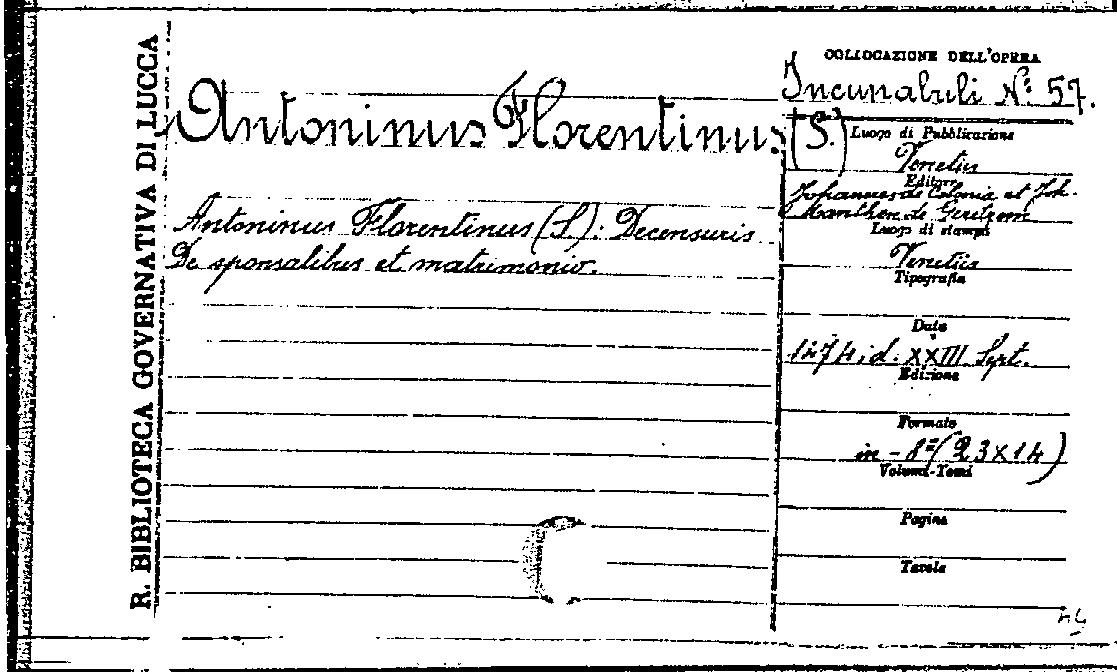 R. BIBLIOTECA GOVERNATIVA DI LUCCA
Antoninus Florentinus (S.)
Antoninus Florentinus (S.): Decensuris
De sponsalibus et matrimonio.
COLLOCAZIONE DELL'OPERA
Incunabuli No: 57.
Luogo di Pubblicazione
Venetiis
Editore
Johannes de Colonia et Joh.
Manthen de
Luogo di stampa
Venetiis
Tipografia
Data
1474, d. XXIII Sept.
Edizione
Formato
in - 8º (23X14)
Volumi-Tomi
Pagine
Tavole